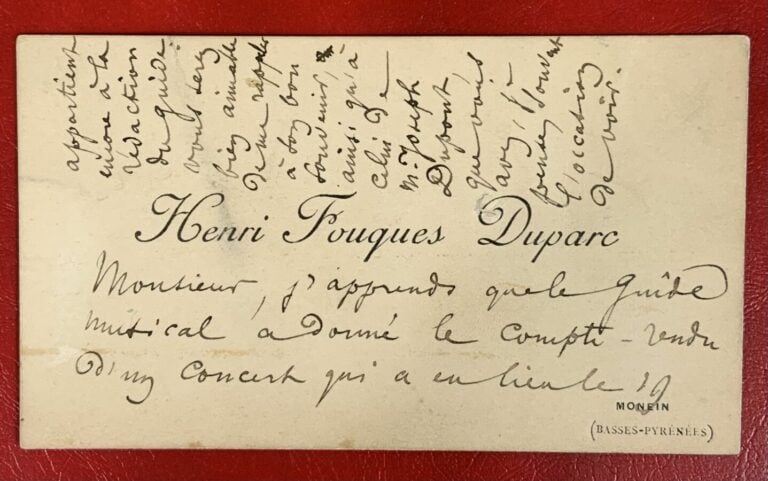 Henri Fouques Duparc
Monsieur, j'apprends que le Guide
musical a donné le compte-rendu
d'un concert qui a eu lieu le 19
MONEIN
(BASSES-PYRÉNÉES)
appartient
encore à la
rédaction
du guide.
vous serez
bien aimable
de me rappeler
à son bon
souvenir,
ainsi qu'à
celui de
M. Joseph
Dupont,
que vous
avez, je
pense, souvent
l'occasion
de voir.